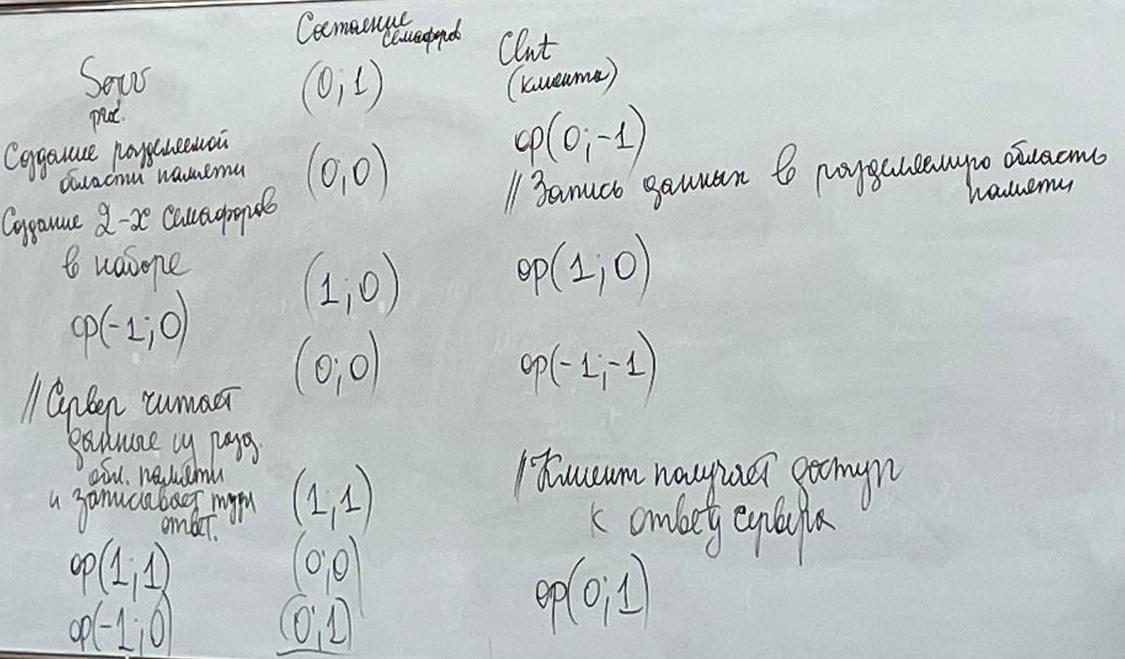 Serv
Создание разделяемой
области памяти
Создание 2-х семафоров
в наборе
op(-1;0)
// Сервер читает
данные из разд.
обл. памяти
и записывает туда
ответ.
op(1;1)
op(-1;0)
Состояние
семафоров
(0;1)
(0;0)
(1;0)
(0;0)
(1;1)
(0;0)
(0;1)
Clnt
(клиента)
op(0;-1)
// Запись данных в разделяемую область
памяти
op(1;0)
op(-1;-1)
// Клиент получает доступ
к ответу сервера
op(0;1)